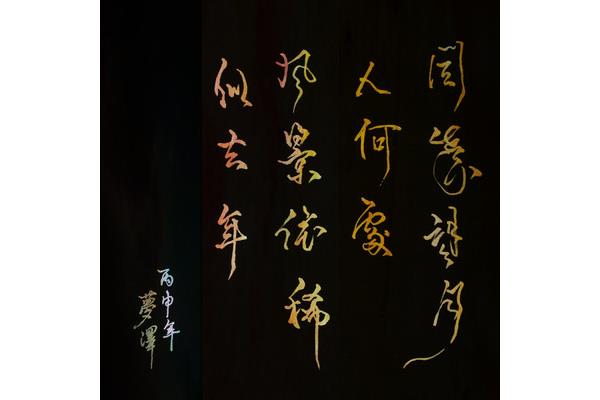 同來望月
人何處
风景依稀
似去年
丙申年
夢澤